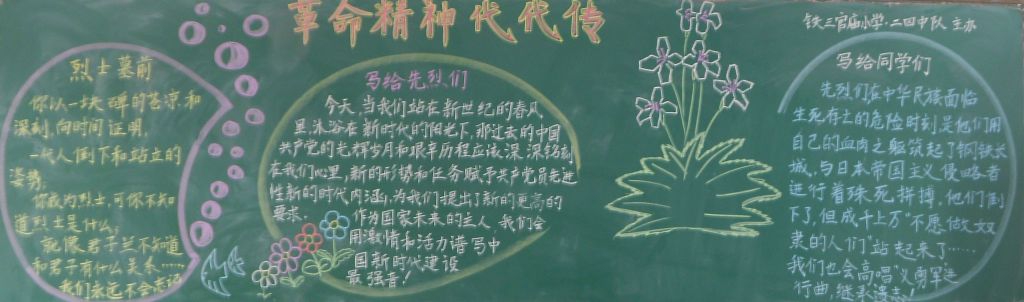 革命精神代代传
铁三官庙小学:二四中队 主办
烈士墓前
你以一块碑的苍凉和
深刻,向时间证明,
一代人倒下和站立的
姿势。
你成为烈士,可你不知
道烈士是什么,
就像君子兰不知道
和君子有什么关系……
我们永远不会忘记
写给先烈们
今天,当我们站在新世纪的春风
里,沐浴在新时代的阳光下,那过去的中国
共产党的光辉岁月和艰辛历程应该深深铭刻
在我们心里,新的形势和任务赋予共产党员先进
性新的时代内涵,为我们提出了新的更高的
要求。作为国家未来的主人,我们会
用激情和活力谱写中
国新时代建设
最强音!
写给同学们
先烈们在中华民族面临
生死存亡的危险时刻是他们用
自己的血肉之躯筑起了钢铁长
城,与日本帝国主义侵略者
进行着殊死拼搏,他们倒
下了,但成千上万“不愿做奴
隶的人们”站起来了……
我们也会高唱《义勇军进
行曲,继承遗志!